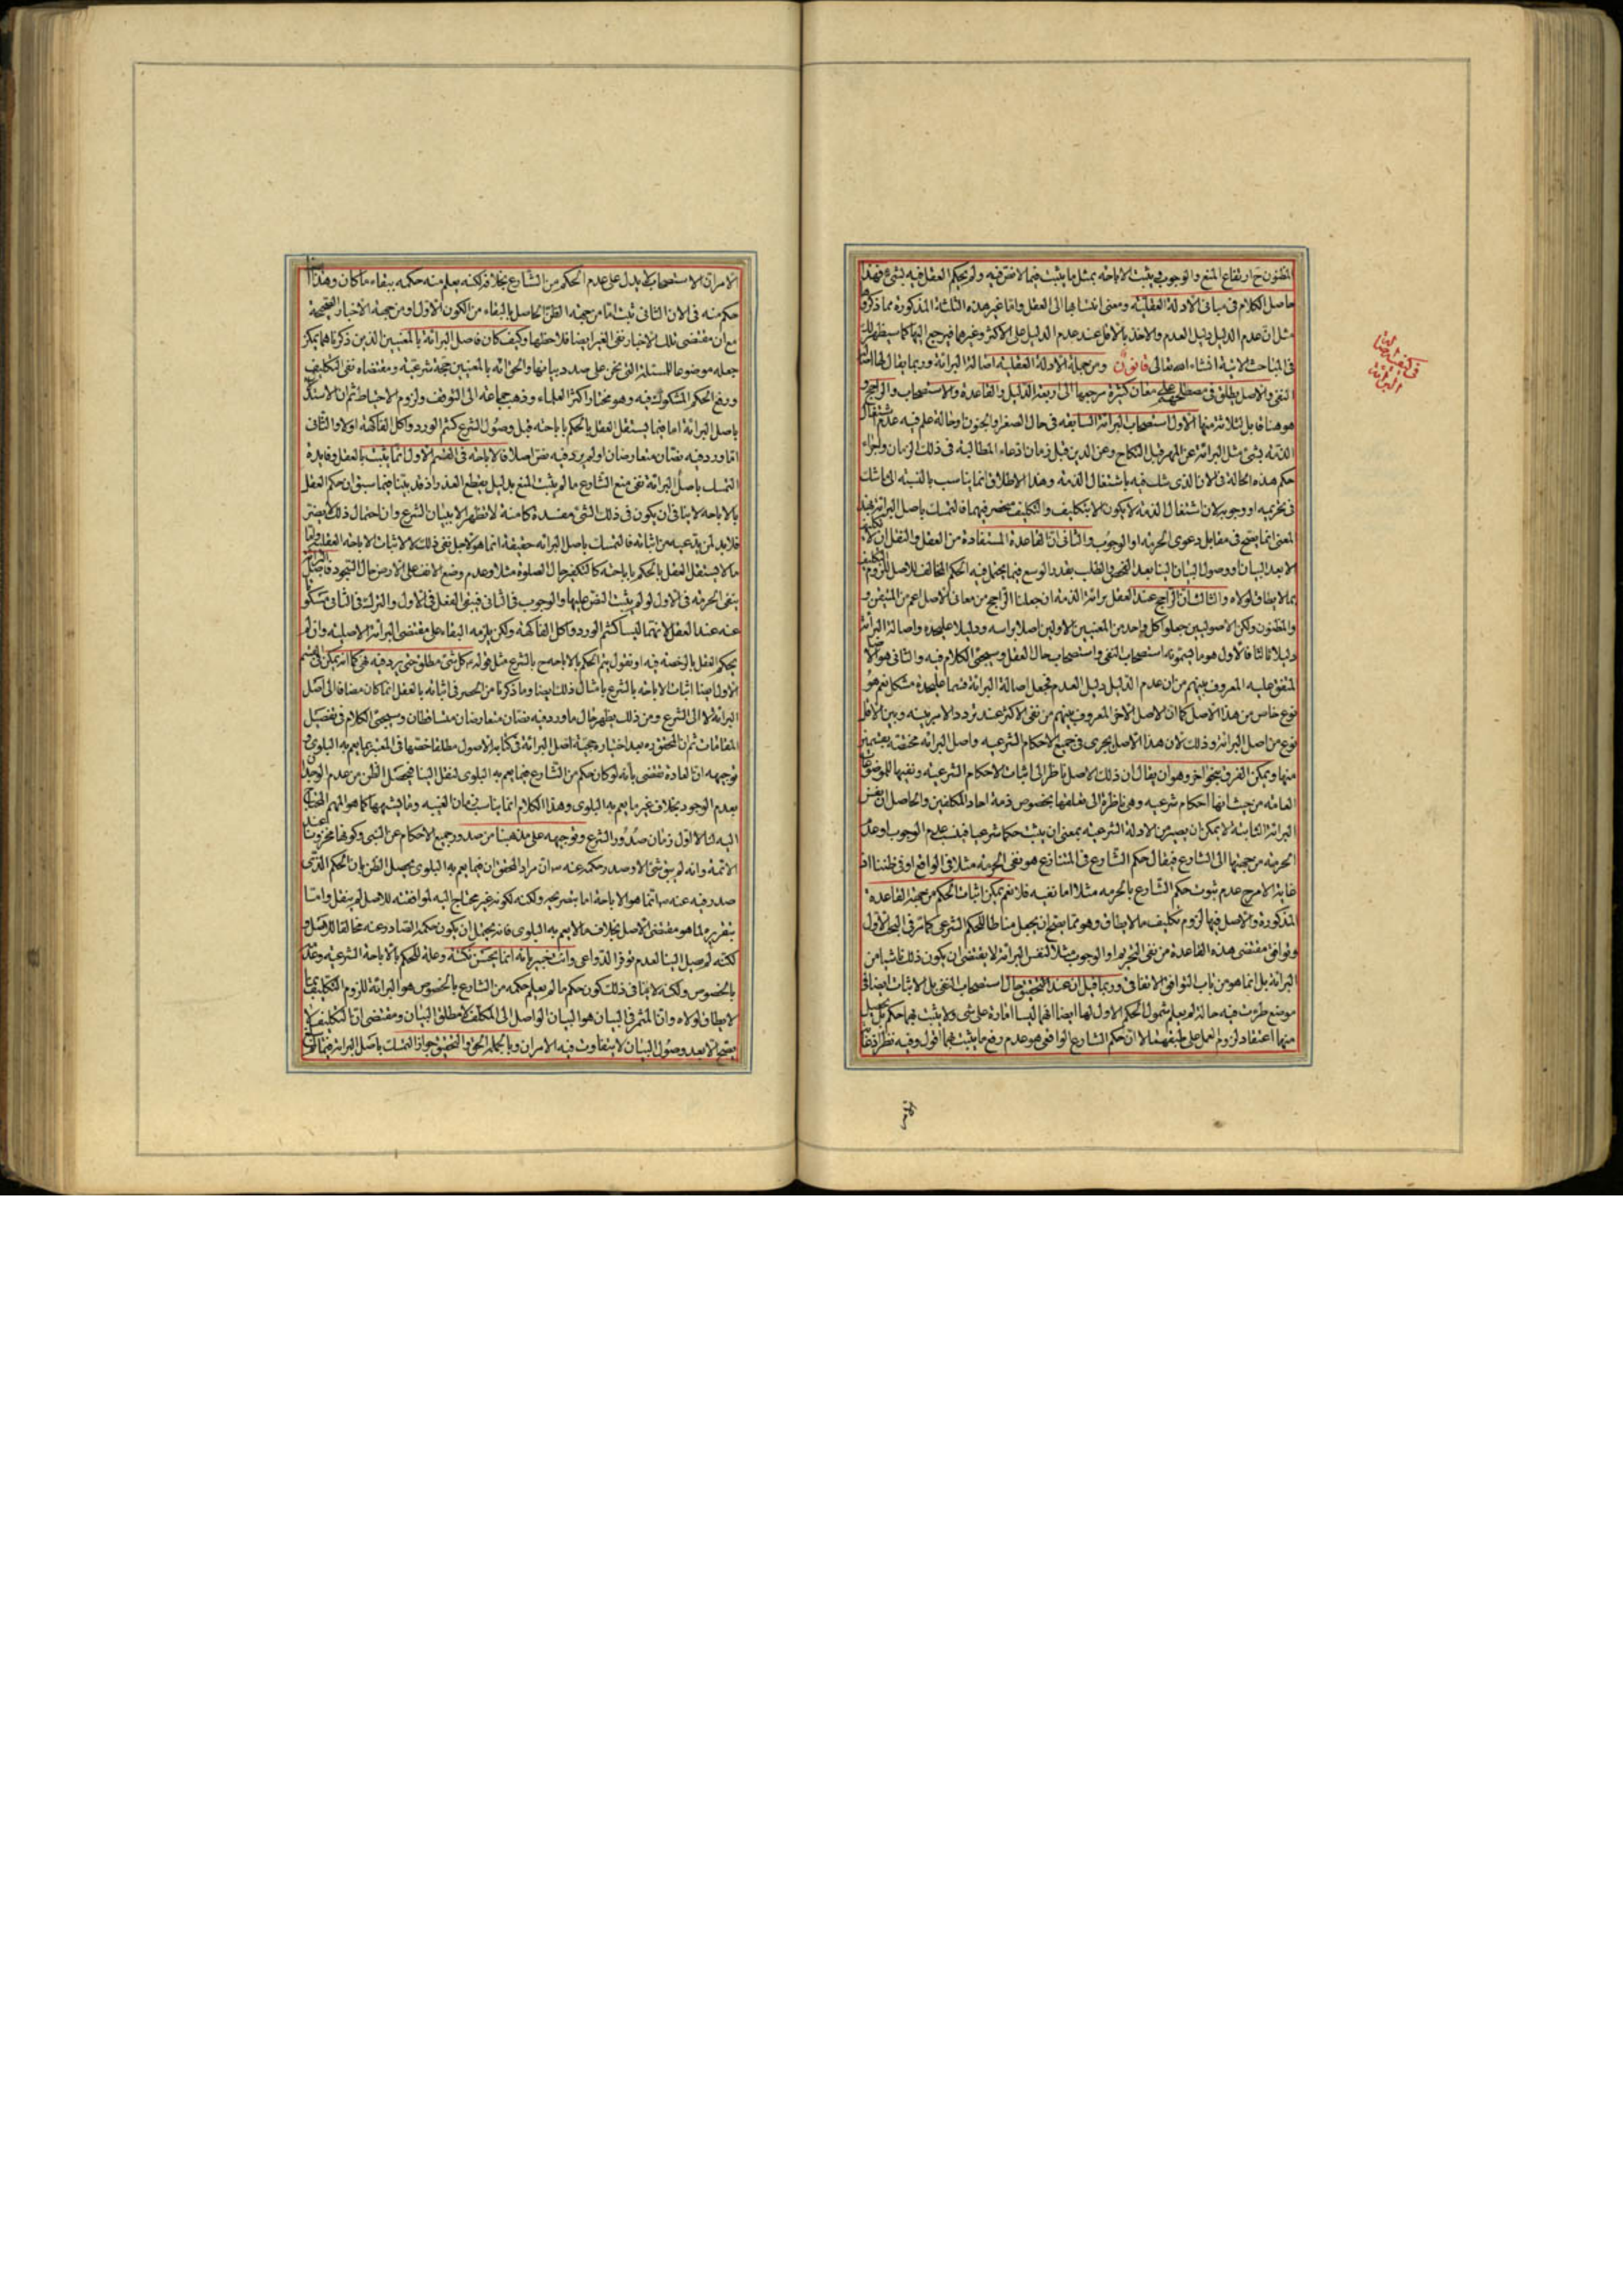 المظنون ح ارتفاع المنع والوجوب فيثبت الاباحة بمثل ما يثبت فيما لا نص فيه ولم يحكم العقل فيه بشيء فهذا
حاصل الكلام في مباني الادلة العقلية ومعنى انتسابها الى العقل واما غير هذه الثلثة المذكورة مما ذكروه
مثل ان عدم الدليل دليل العدم والاخذ بالاقل عند عدم الدليل على الاكثر وغيرهما فيرجع اليها كما سيظهر لك
في المباحث الاتية انشاء الله تعالى قانون ومن جملة الادلة العقلية اصالة البرائة وربما يقال لها اصالة
النفي والاصل يطلق في مصطلحهم على معان كثيرة مرجعها الى اربعة الدليل والقاعدة والاستصحاب والراجح و
هو هنا قابل لثلاثة منها الاول استصحاب البرائة السابقة في حال الصغر والجنون او حالة علم فيه عدم اشتغال
الذمة بشيء مثل البرائة عن المهر قبل النكاح وعن الدين قبل زمان ادعاء المطالبة في ذلك الزمان واجراء
حكم هذه الحالة في الان الذي شك فيه باشتغال الذمة وهذا الاطلاق انما يناسب بالنسبة الى ما شك
في تحريمه او وجوبه لان اشتغال الذمة لا يكون الا بتكليف والتكليف منحصر فيهما فالتمسك باصل البرائة بهذا
المعنى انما يصح في مقابل دعوى الحرمة او الوجوب والثاني ان القاعدة المستفادة من العقل والنقل ان لا تكليف
الا بعد البيان او وصول البيان الينا بعد الفحص والطلب بقدر الوسع فيما يحتمل فيه الحكم المخالف للاصل للزوم التكليف
بما لا يطاق لولاه والثالث ان الراجح عند العقل برائة الذمة ان جعلنا الراجح من معاني الاصل اعم من المتيقن و
والمظنون ولكن الاصوليين جعلوا كل واحد من المعنيين الاولين اصلا براسه ودليلا عليحدة واصالة البرائة
دليلا ثالثا فالاول هو ما يسمونه استصحاب النفي واستصحاب حال العقل وسيجئ الكلام فيه والثاني هو الاصل
المتفق عليه المعروف بينهم من ان عدم الدليل دليل العدم فجعل اصالة البرائة قسما عليحدة مشكل نعم هو
نوع خاص من هذا الاصل كما ان الاصل الاخر المعروف بينهم من نفي الاكثر عند تردد الامر بينه وبين الاقل
نوع من اصل البرائة وذلك لان هذا الاصل يجري في جميع الاحكام الشرعية واصل البرائة مختصة بقسمين
منها ويمكن الفرق بنحو اخر وهو ان يقال ان ذلك الاصل ناظر الى اثبات الاحكام الشرعية ونفيها للموضوعات
العامة من حيث انها احكام شرعية وهي ناظرة الى تعلقها بخصوص ذمة احاد المكلفين والحاصل ان نفس
البرائة الثابتة لا يمكن ان يصير من الادلة الشرعية بمعنى ان يثبت حكما شرعيا فينسب عدم الوجوب او عدم
الحرمة من جهتها الى الشارع فيقال حكم الشارع في المتنازع هو نفي الحرمة مثلا في الواقع او في ظننا اذ
غاية الامر ح عدم ثبوت حكم الشارع بالحرمة مثلا اما نفيه فلا نعم يمكن اثبات الحكم من جهة القاعدة
المذكورة والاصل فيها لزوم تكليف ما لا يطاق وهو مما يصح ان يجعل مناطا للحكم الشرعي كما مر في البحث الاول
وتوافق مقتضى هذه القاعدة من نفي التحريم او الوجوب مثلا لنفس البرائة لا يقتضي ان يكون ذلك ناشيا من
البرائة بل انما هو من باب التوافق الاتفاقي وربما قيل ان عند التحقيق حال استصحاب النفي بل الاثبات ايضا في
موضع طرئت فيه حالة لم يعلم شمول الحكم الاول لها ايضا انهما ليسا امارة على شيء ولا يثبت فيهما حكم بل يحصل
منهما اعتقاد لزوم العمل على طبقهما لا ان حكم الشارع الواقعي هو عدم رفع ما يثبت فيهما اقول وفيه نظر اذ غاية
في كيفية
اصالة
البرائة
الامر ان الاستصحاب لا يدل على عدم الحكم من الشارع بخلافه لكنه يعلم منه حكمه ببقاء ما كان وهذا
حكم منه في الان الثاني ثبت اما من جهة الظن الحاصل بالبقاء من الكون الاول او من جهة الاخبار الصحيحة
مع ان مقتضى تلك الاخبار نفي الغير ايضا فلاحظها وكيف كان فاصل البرائة بالمعنيين الذين ذكرناهما يمكن
جعله موضوعا للمسئلة التي نحن على صدد بيانها والحق انه بالمعنيين حجة شرعية ومقتضاه نفي التكليف
ورفع الحكم المشكوك فيه وهو مختار اكثر العلماء وذهب جماعة الى التوقف ولزوم الاحتياط ثم ان الاستدلال
باصل البرائة اما فيما يستقل العقل بالحكم باباحته قبل وصول الشرع كشم الورد واكل الفاكهة اولا والثاني
اما ورد فيه نصان متعارضان او لم يرد فيه نص اصلا فالاباحة في القسم الاول انما يثبت بالعقل وفايدة
التمسك باصل البرائة نفي منع الشارع ما لم يثبت المنع بدليل يقطع العذر اذ قد بينا فيما سبق ان حكم العقل
بالاباحة لا ينافي ان يكون في ذلك الشيء مفسدة كامنة لا تظهر الا ببيان الشرع وان احتمال ذلك لا يضر
فلا بد لمن يدعيه من اثباته فالتمسك باصل البرائة حقيقة انما هو لاجل نفي ذلك لا لاثبات الاباحة العقلية واما
ما لا يستقل العقل بالحكم باباحته كالتكفير حال الصلوة مثلا وعدم وضع الانف على الارض حال السجود فاصل البرائة
ينفي الحرمة في الاول لو لم يثبت النص عليها والوجوب في الثاني فبقي الفعل في الاول والترك في الثاني مسكوتا
عنه عند العقل لانهما ليسا كشم الورد واكل الفاكهة ولكن يلزمه البقاء على مقتضى البرائة الاصلية وان لم
يحكم العقل بالرخصة فيه او نقول يتم الحكم بالاباحة ح بالشرع مثل قوله ع كل شيء مطلق حتى يرد فيه نهي كما انه يمكن في القسم
الاول ايضا اثبات الاباحة بالشرع بامثال ذلك ايضا وما ذكرنا من الحصر في اثباته بالعقل انما كان مضافا الى اصل
البرائة لا الى الشرع ومن ذلك يظهر حال ما ورد فيه نصان متعارضان متساقطان وسيجئ الكلام في تفصيل
المقامات ثم ان المحقق ره بعد اختياره حجية اصل البرائة في كتابه الاصول مطلقا اختصها في المعتبر بما يعم به البلوى و
توجيهه ان العادة تقتضي بانه لو كان حكم من الشارع فيما يعم به البلوى لنقل الينا فيحصل الظن من عدم الوجدان
بعدم الوجود بخلاف غير ما يعم به البلوى وهذا الكلام انما يناسب زمان الغيبة وما يشبهها كما هو المهم المحتاج
اليه لنا لا لاول زمان صدور الشرع وتوجيهه على مذهبنا من صدور جميع الاحكام عن النبي وكونها مخزونة عند
الائمة وانه لم يبق شيء الا وصدر حكمه عنه ص ان مراد المحقق ان فيما يعم به البلوى يحصل الظن بان الحكم الذي
صدر فيه عنه ص انما هو الاباحة اما بتصريحه ولكنه لكونه غير محتاج اليه لموافقته للاصل لم ينقل واما
بتقريره لما هو مقتضى الاصل بخلاف ما لا يعم به البلوى فانه يحتمل ان يكون حكمه الصادر عنه مخالفا للاصل و
لكنه لم يصل الينا لعدم توفر الدواعي وانت خبير بانه انما يحسن نكتة وعلة للحكم بالاباحة الشرعية وعدمه
بالخصوص ولكنه لا ينافي ذلك كون حكم ما لم يعلم حكمه من الشارع بالخصوص هو البرائة للزوم التكليف بما
لا يطاق لولاه وان المثمر في البيان هو البيان الواصل الى المكلف لا مطلق البيان ومقتضى ان التكليف لا
يصح الا بعد وصول البيان لا يتفاوت فيه الامران وبالجملة الحق والتحقيق جواز التمسك باصل البرائة فيما